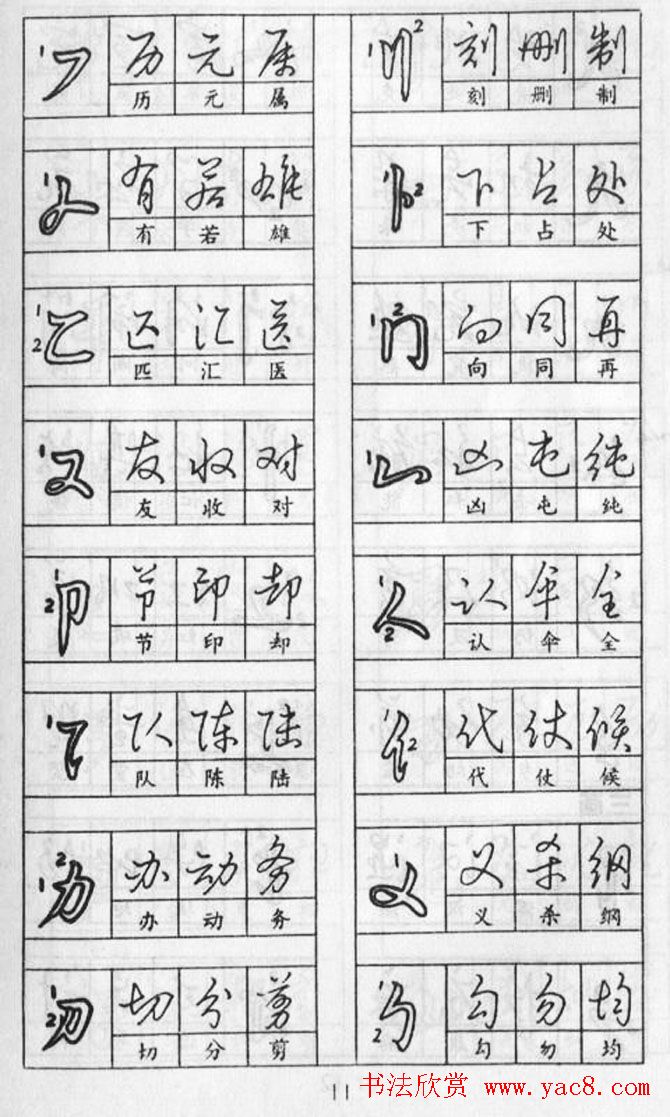 历 元 属
历 元 属
有 若 雄
有 若 雄
匹 汇 医
匹 汇 医
友 收 对
友 收 对
节 印 却
节 印 却
队 陈 陆
队 陈 陆
办 动 务
办 动 务
切 分 剪
切 分 剪
刻 删 制
刻 删 制
下 占 处
下 占 处
向 同 再
向 同 再
凶 屯 纯
凶 屯 纯
认 伞 全
认 伞 全
代 仗 候
代 仗 候
义 杀 纲
义 杀 纲
勾 勿 均
勾 勿 均
11
书法欣赏 www.yac8.com